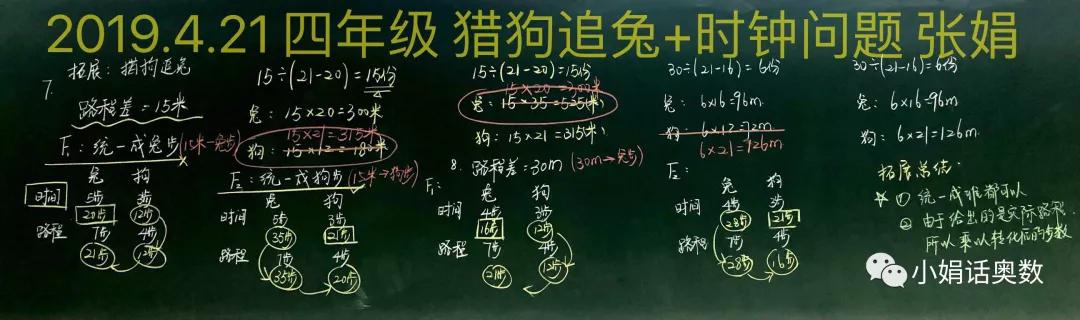 2019.4.21 四年级 猎狗追兔+时钟问题 张娟
拓展：猎狗追兔
7.
路程差=15米
F₁：统一成兔步(15米→兔步)
兔 狗
时间 5步 3步
20步 12步
路程 7步 4步
21步 12步
15÷(21-20)=15份
兔：15×20=300米
15×21=315米
狗：15×12=180米
F₂：统一成狗步(15米→狗步)
兔 狗
时间 5步 3步
35步 21步
路程 7步 4步
35步 20步
15÷(21-20)=15份
15×20=300米
兔：15×35=535米
狗：15×21=315米
8. 路程差=30m (30m→兔步)
F₁：
兔 狗
时间 4步 3步
16步 12步
路程 7步 4步
21步 12步
30÷(21-16)=6份
兔：6×16=96m
狗：6×12=72m
6×21=126m
F₂：
兔 狗
时间 4步 3步
28步 21步
路程 7步 4步
28步 16步
30÷(21-16)=6份
兔：6×16=96m
狗：6×21=126m
拓展总结：
① 统一成谁都可以
② 由于给出的是实际路程，
所以乘以转化后的步数
小娟话奥数